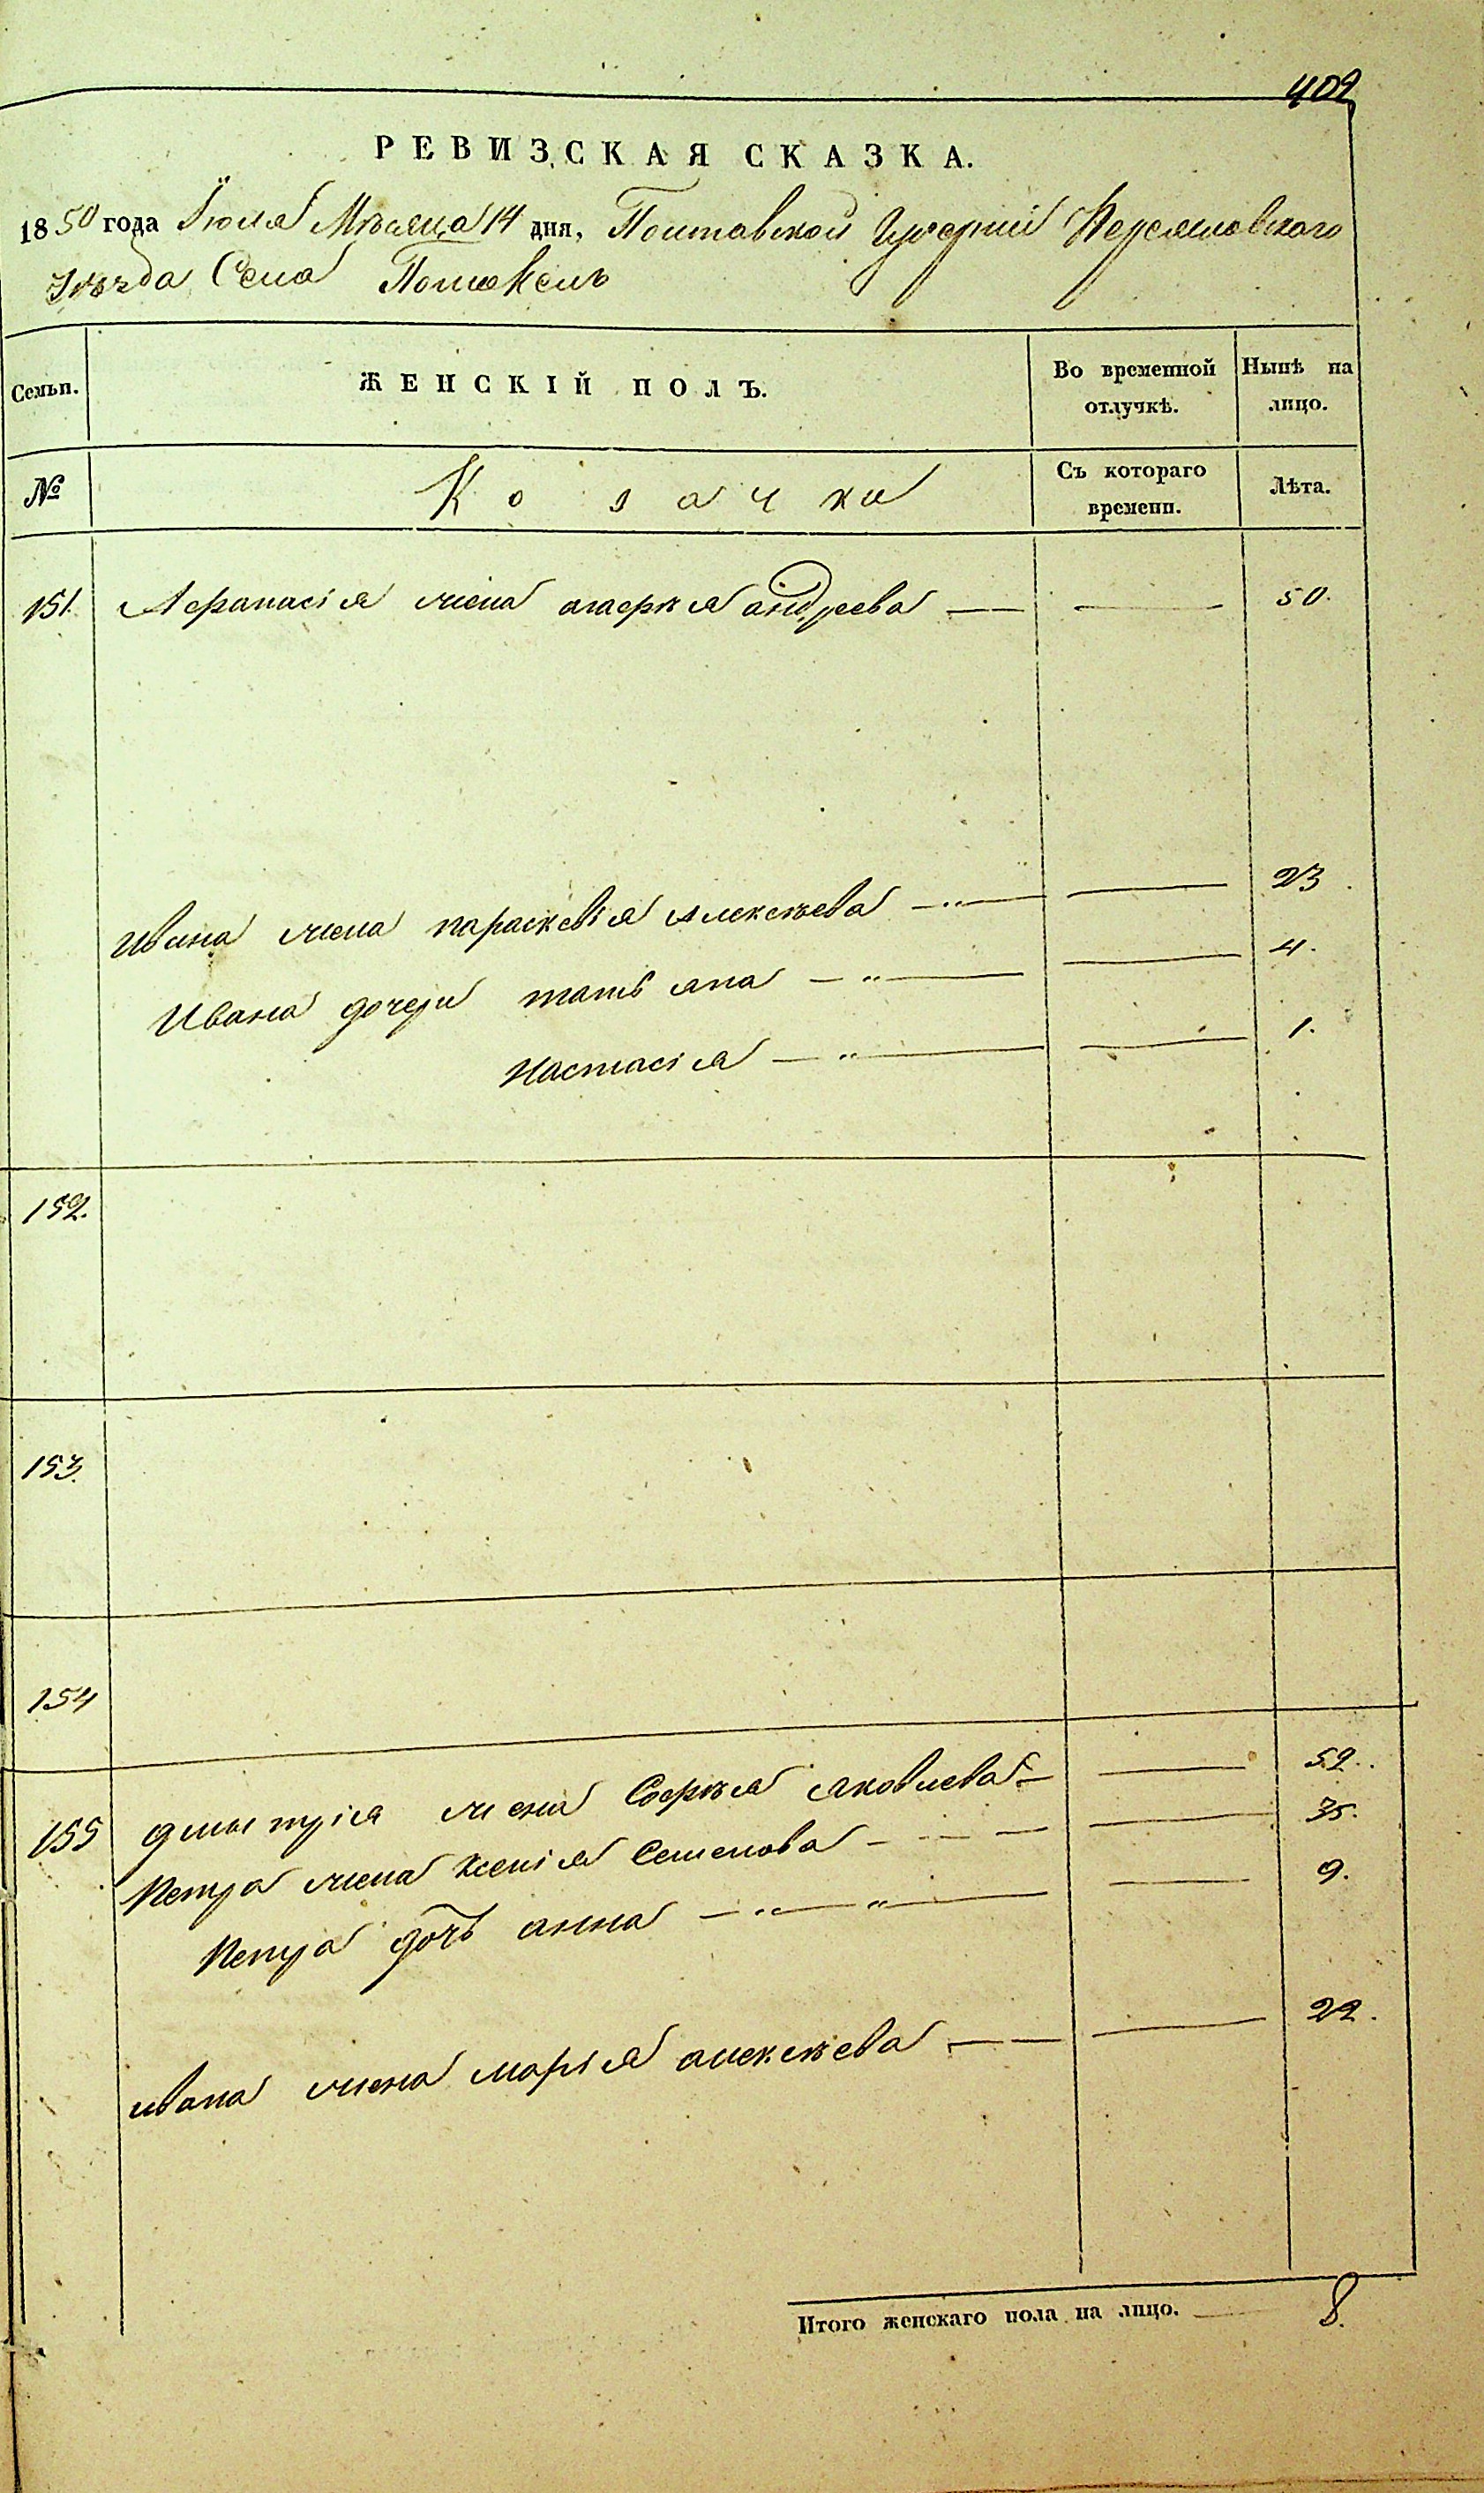 409
РЕВИЗСКАЯ СКАЗКА.
1850 года Іюля Мѣсяца 14 дня, Полтавской Губерніи Переяславского
Уѣзда Села
Семьи.
ЖЕНСКІЙ ПОЛЪ.
Во временной отлучкѣ.
Нынѣ на лицо.
№
Козачки
Съ котораго времени.
Лѣта.
151. Афанасія жена Андреева — — 50.
Ивана жена параскевія Алексѣева — — 23.
Ивана дочери татьяна — — 4.
Настасія — — 1.
152.
153.
154
155 дмытрія жена Софія яковлева — — 52.
Петра жена Ксенія Семенова — — 35.
Петра дочь анна — — 9.
ивана жена марія алексѣева — — 22.
Итого женскаго пола на лицо. — 8.